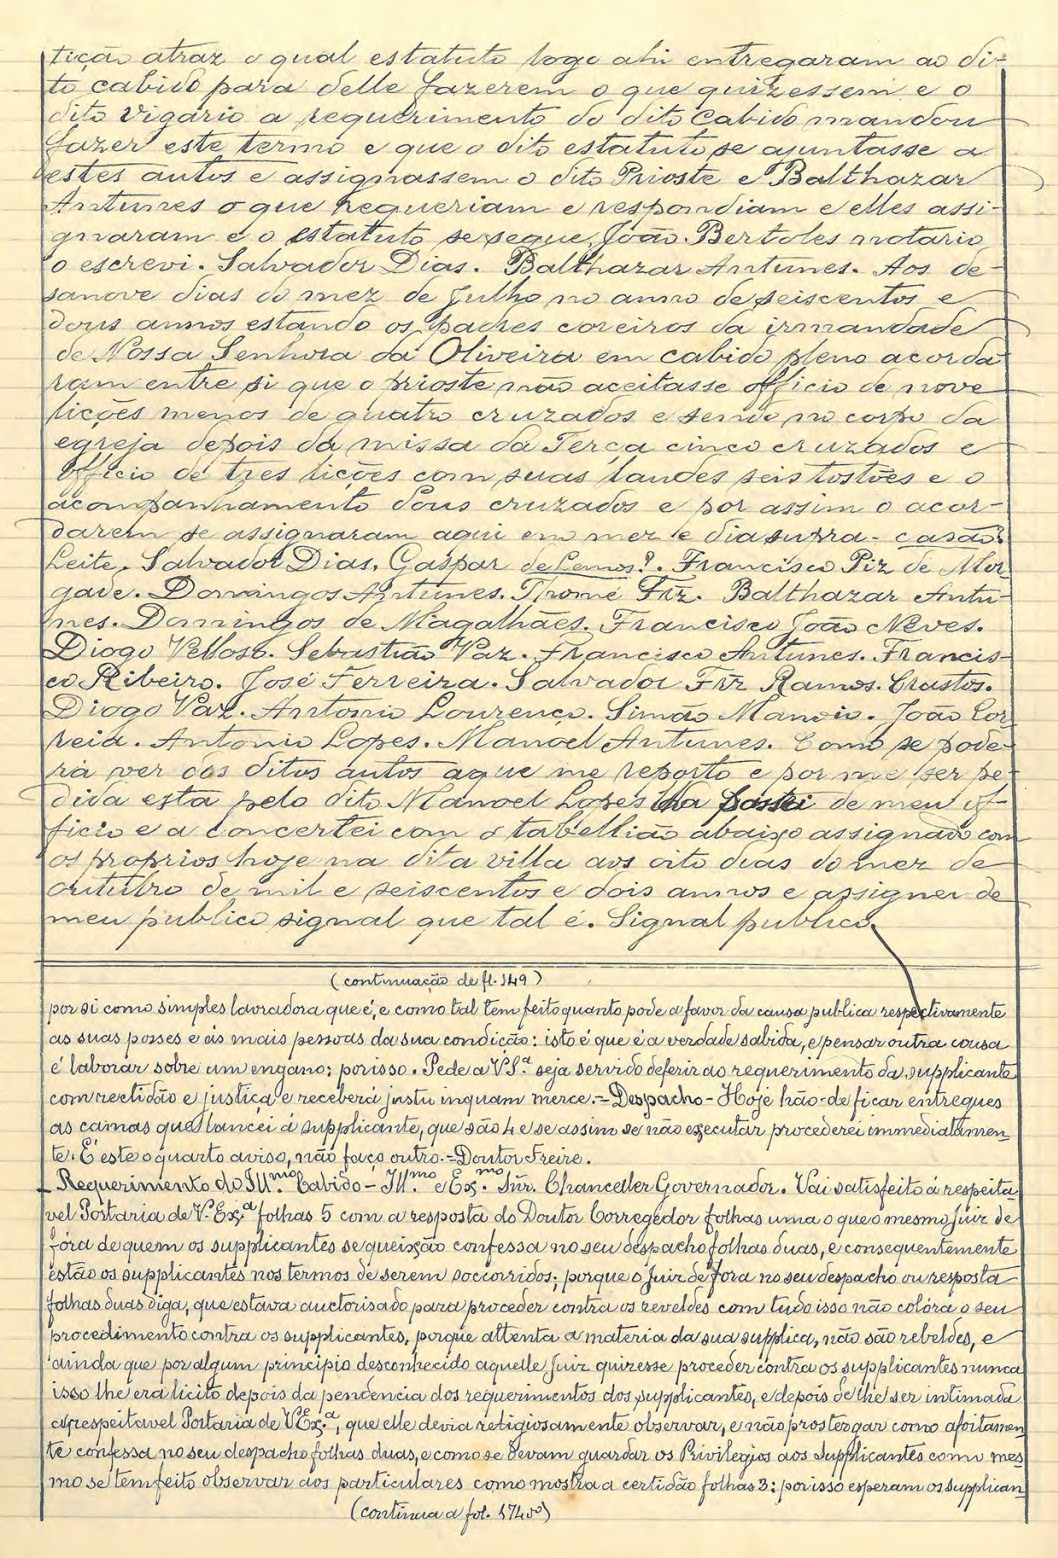 tição atraz o qual estatuto logo ahi entregaram ao di-
to cabido para delle fazerem o que quizessem e o
dito vigario a requerimento do dito Cabido mandou
fazer este termo e que o dito estatuto se ajuntasse a
estes autos e assignassem o dito Prioste e Balthazar
Antunes o que requeriam e respondiam e elles assi-
gnaram e o estatuto se segue, João Bertoles notario,
o escrevi. Salvador Dias. Balthazar Antunes. Aos de-
sanove dias do mez de Julho no anno de seiscentos e
dous annos estando os padres coreiros da irmandade
de Nossa Senhora da Oliveira em cabido pleno acorda
ram entre si que o prioste não aceitasse officio de nove
lições menos de quatro cruzados e sendo no corpo da
egreja depois da missa da Terça cinco cruzados e
officio de tres lições com suas laudes seis tostões e o
acompanhamento dous cruzados e por assim o acor-
darem se assignaram aqui em mez e dia sutra - casão?
Leite. Salvador Dias, Gaspar de Lemos?. Francisco Piz de Mor
gade. Domingos Antunes. Thomé Frz. Balthazar Antu-
nes. Domingos de Magalhães. Francisco João Neves.
Diogo Velloso. Sebastião Vaz. Francisco Antunes. Francis-
co Ribeiro. José Ferreira. Salvador Frz Ramos. Crastos.
Diogo Vaz. Antonio Lourenço. Simão Manoio. João Cor
reia. Antonio Lopes. Manoel Antunes. Como se pode-
rá ver dos ditos autos a que me reporto e por me ser pe-
dida esta pelo dito Manoel Lopes lha passei de meu of-
ficio e a concertei com o tabellião abaixo assignado com
os proprios hoje na dita villa aos oito dias do mez de
outubro de mil e seiscentos e dois annos e assignei de
meu publico signal que tal é. Signal publico.
(continuação de fl. 149)
por si como simples lavradora que é, e como tal tem feito quanto pode a favor da causa publica respectivamente
as suas posses e ás mais pessoas da sua condição: isto é que é a verdade sabida, e pensar outra cousa
é laborar sobre um engano; por isso. Pede a V.S.ª seja servido deferir ao requerimento da supplicante
com rectidão e justiça e receberá justu inquam merce.=Despacho- Hoje hão-de ficar entregues
as camas que lancei á supplicante, que são 4 e se assim se não executar procederei immediatamen
te. É este o quarto aviso, não faço outro.=Doutor Freire.
Requerimento do Ill.mo Cabido - Ill.mo e Ex.mo Snr. Chanceller Governador. Vai satisfeito á respeita
vel Portaria de V. Ex.ª folhas 5 com a resposta do Doutor Corregedor folhas uma o que o mesmo Juiz de
fóra de quem os supplicantes se queixão confessa no seu despacho folhas duas, e consequentemente
estão os supplicantes nos termos de serem soccorridos; porque o Juiz de fora no seu despacho ou resposta
folhas duas diga, que estava auctorisado para proceder contra os reveldes com tudo isso não colóra o seu
procedimento contra os supplicantes, porque attenta a materia da sua supplica, não são rebeldes, e
ainda que por algum principio desconhecido aquelle Juiz quizesse proceder contra os supplicantes nunca
isso lhe era licito depois da pendencia dos requerimentos dos supplicantes, e depois de lhe ser intimada
a respeitavel Portaria de V.Ex.ª, que elle devia religiosamente observar, e não prostergar como afoitamen
te confessa no seu despacho folhas duas, e como se devam guardar os Privilegios aos Supplicantes como mes
mo se tem feito observar aos particulares como mostra a certidão folhas 3: por isso esperam os supplican
(continua a fol. 174 vº)